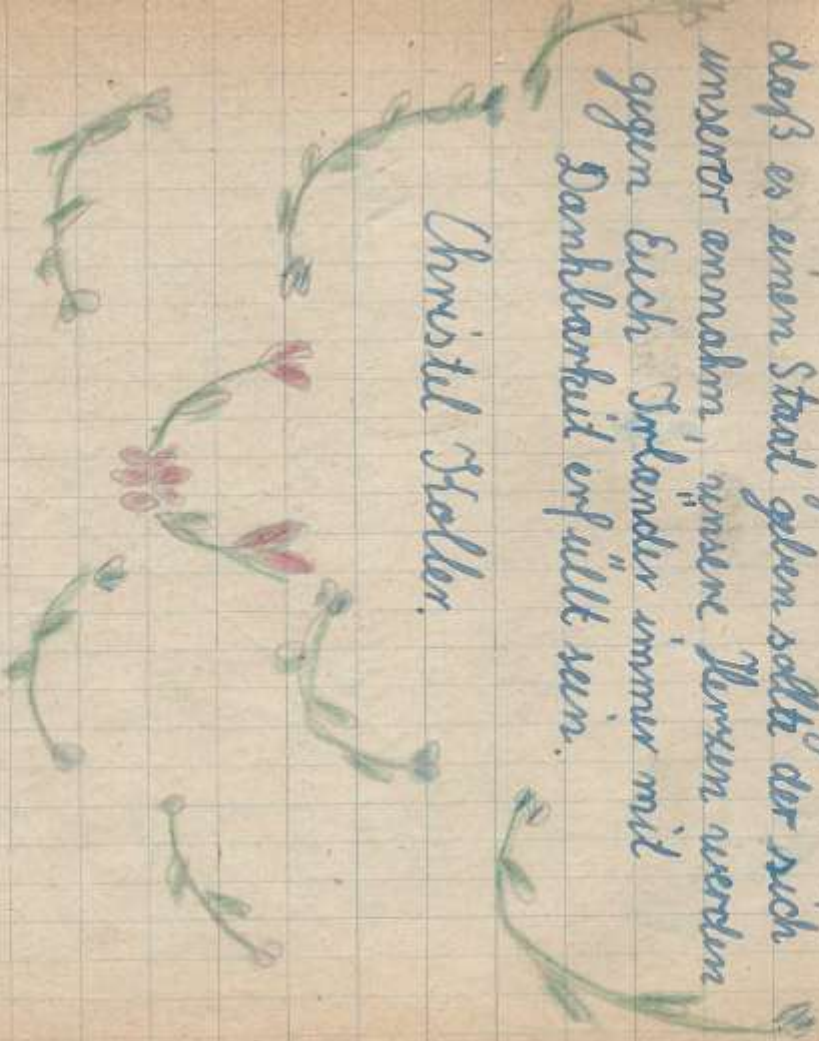 daß es einen Staat geben sollte der sich
unserer annahm, unsere Herzen werden
gegen Euch Irländer immer mit
Dankbarkeit erfüllt sein.
Christel Koller.